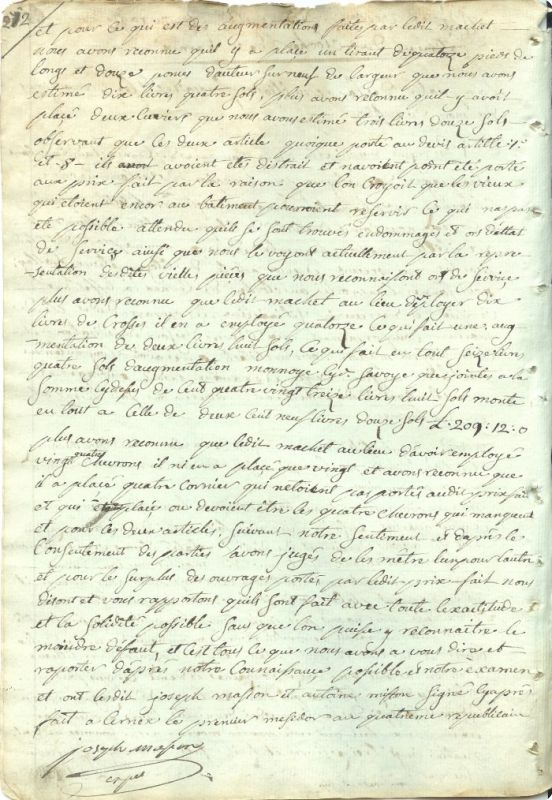 212
et pour ce qui est des augmentations faites par ledit machet
nous avons reconnu quil y a placé un tirant de quatorze pieds de
longs et douze pouces d'auteur sur neuf de largeur que nous avons
estimé dix livres quatre sols, plus avons reconnu quil y avoit
placé deux que nous avons estimé trois livres douze sols
observant que ces deux article quoique porté au devis article 7e
et 8e ils avoient etés distrait et navoient point été porté
aux prix fait par la raison que lon croyoit que les vieux
qui etoient encor au batiment pourroient reservir ce qui na pas
eté possible attendu quils se sont trouvés endommagés et ors d'etat
de service ainsi que nous le voyons actuellement par la repre
-sentation desdites vielles pièces que nous reconnaissons ors de service
plus avons reconnu que ledit machet au lieu d'employer dix
livres de crosses il en a employé quatorze ce qui fait une aug
mentation de deux livres huit sols, ce qui fait en tout seize livres
quatre sols daugmentation monnoye de Savoye que jointes a la
somme cydessus de cent quatre vingt treize livres huit sols monte
en tout a celle de deux cent neuf livres douze sols L. 209: 12: 0
plus avons reconnu que ledit machet au lieu d'avoir employé
vingt quatre chevrons il ni en a placé que vingt et avons reconnu que
il a placé quatre cornier qui netoient pas portés audit prix fait
et qui placés ou devoient être les quatre chevrons qui manquent
et pour ces deux articles, suivant notre sentement et daprès le
consentement des parties avons jugés de les mêtre lun pour lautre
et pour le surplus des ouvrages portés par ledit prix-fait nous
disons et vous rapportons quils sont fait avec toute lexactitude
et la solidité possible sans que lon puisse y reconnaitre le
moindre défaut, et c'est tous ce que nous avons a vous dire et
raporter d'après notre connaissance possible et notre examen
et ont lesdit joseph masson et antoine misson signé cy après
fait a Cernex le premier mesidor an quatrieme republicain
joseph masson